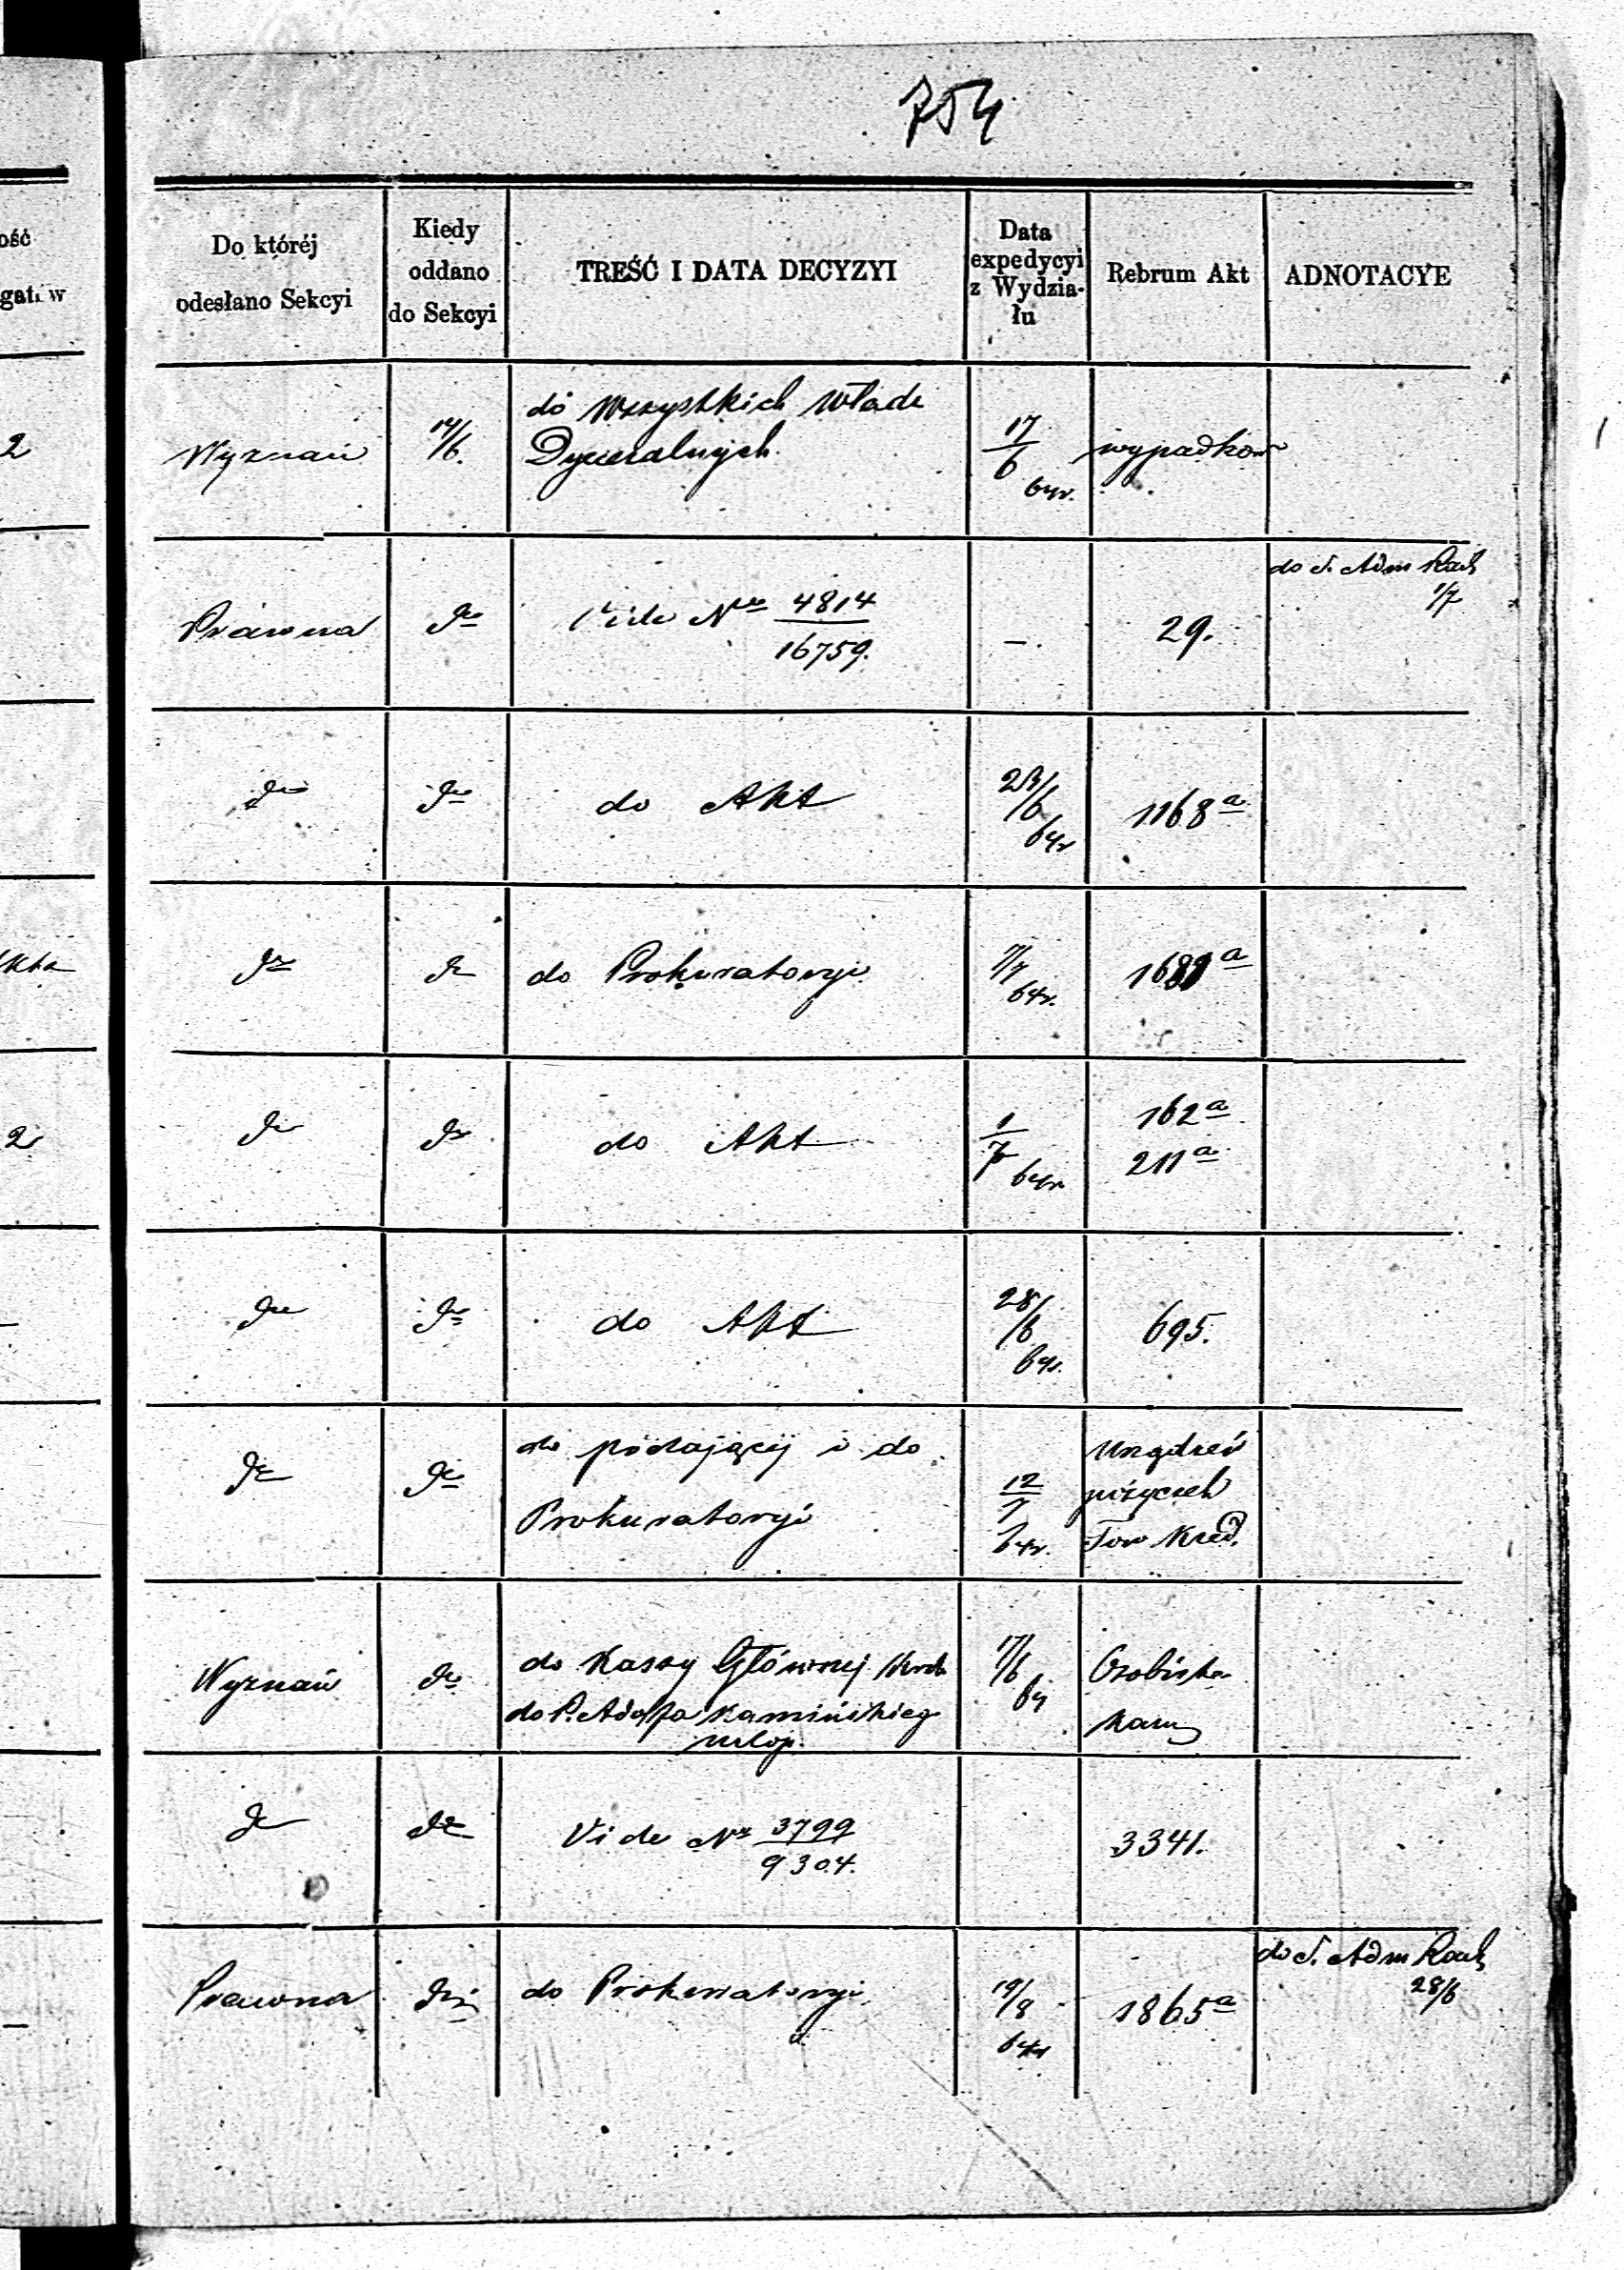 754
ość
gatów
Do któréj
odesłano Sekcyi
Kiedy
oddano
do Sekcyi
TREŚĆ I DATA DECYZYI
Data
expedycyi
z Wydzia-
łu
Rebrum Akt
ADNOTACYE
2
Wyznań
14/6.
do wszystkich Władz
Dyecezalnych
17/6
64r.
wypadków
Prawna
do
Vide Nro 4814
16759.
–.
29.
do S. Adm Rach
1/7
do
do
do Akt
23/6
64r
1168 a
do
do
do Prokuratoryi
7/7
64r.
1681 a
do
do
do Akt
1/7
64r
162 a
211 a
2
do
do
do Akt
28/6
64r.
695.
do
do
do podającéj i do
Prokuratoryi
12/7
64r.
Urządzeń
pożyczek
Tow Kred.
Wyznań
do
do Kassy Głównej
do P. Adolfa Kamińskieg
urlop.
17/6
64
Osobiste
Kam
do
do
Vide Nr 3799
9304.
3341.
Prawna
do
do Prokuratoryi
19/8
64r
1865 a
do S. Adm Rach
28/6